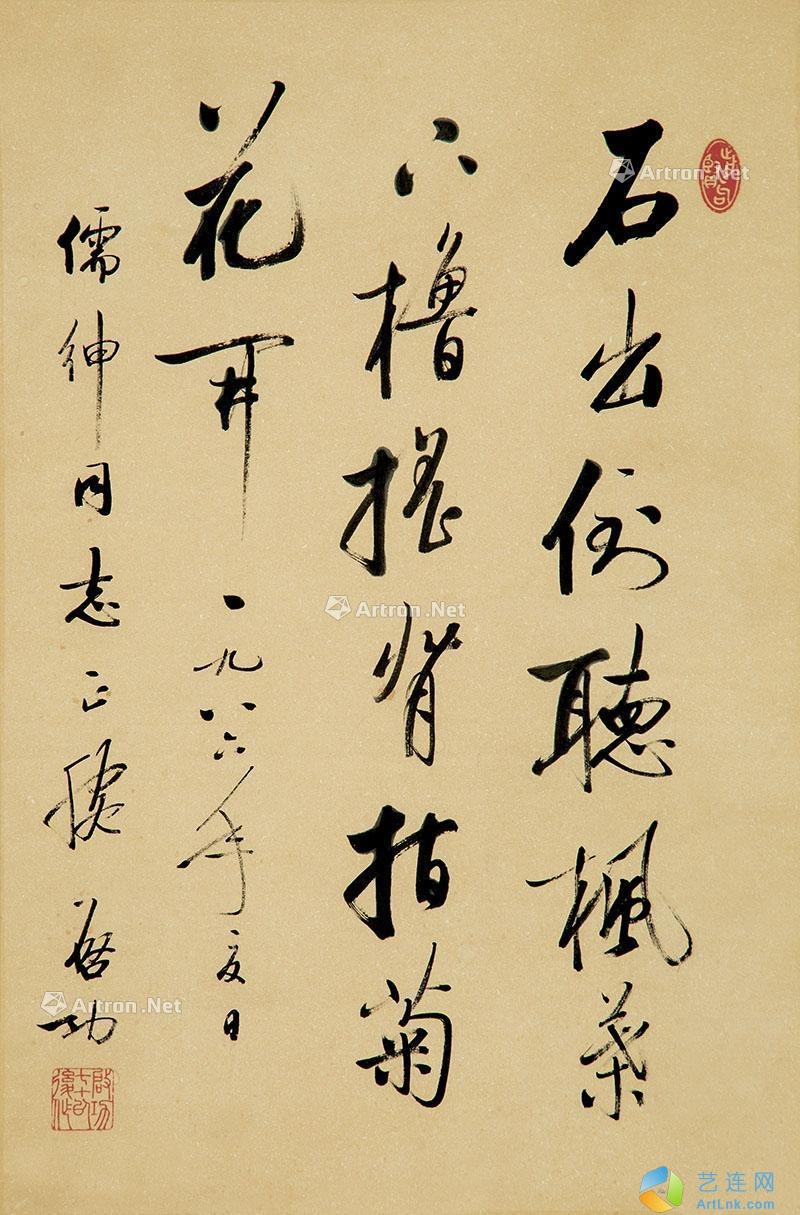 石出倒聽楓葉
下櫓搖背指菊
花開 一九八六年夏日
儒紳同志正腕 啓功
啟功七十後作
Artron.Net
Artron.Net
Artron.Net
艺连网
ArtLnk.com